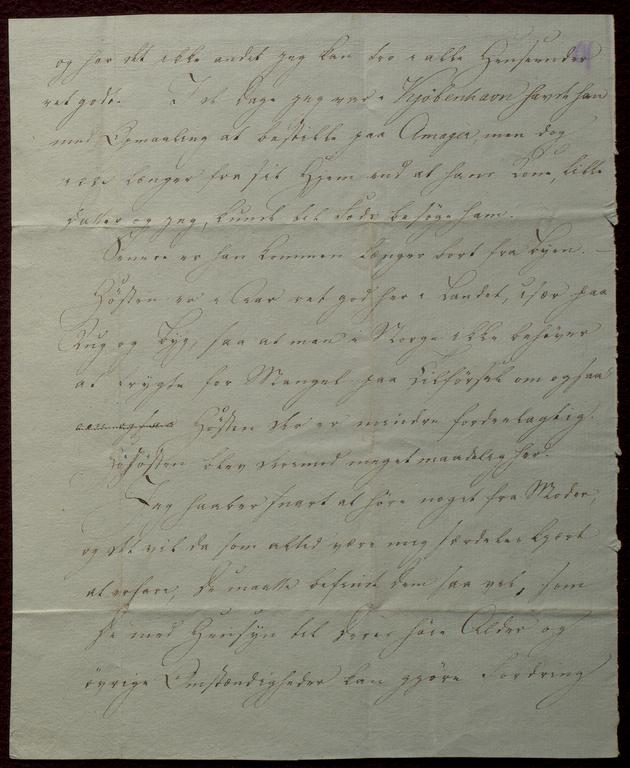 og har det ikke andet jeg kan tro i alle Henseender
ret godt. I de Dage jeg var i Kjøbenhavn havde han
med Opmaaling at bestille paa Amager, men dog
ikke længer fra sit Hjem end at hans Kone, lille
Datter og jeg, kunde til Fods besøge ham.
Senere er han kommen længer bort fra Byen. –
Høsten er i Aar ret god her i Landet, især paa
Rug og Byg, saa at man i Norge ikke behøver
at frygte for Mangel paa Tilførsel om ogsaa
Høsten der er mindre fordeelagtig.
Høhøsten blev derimod meget maadelig her.
Jeg haaber snart at høre noget fra Moder,
og det vil da som altid være mig særdeles kjært
at erfare, De maatte befinde Dem saa vel, som
De med Hensyn til Deres høie Alder og
øvrige Omstændigheder kan gjøre Fordring